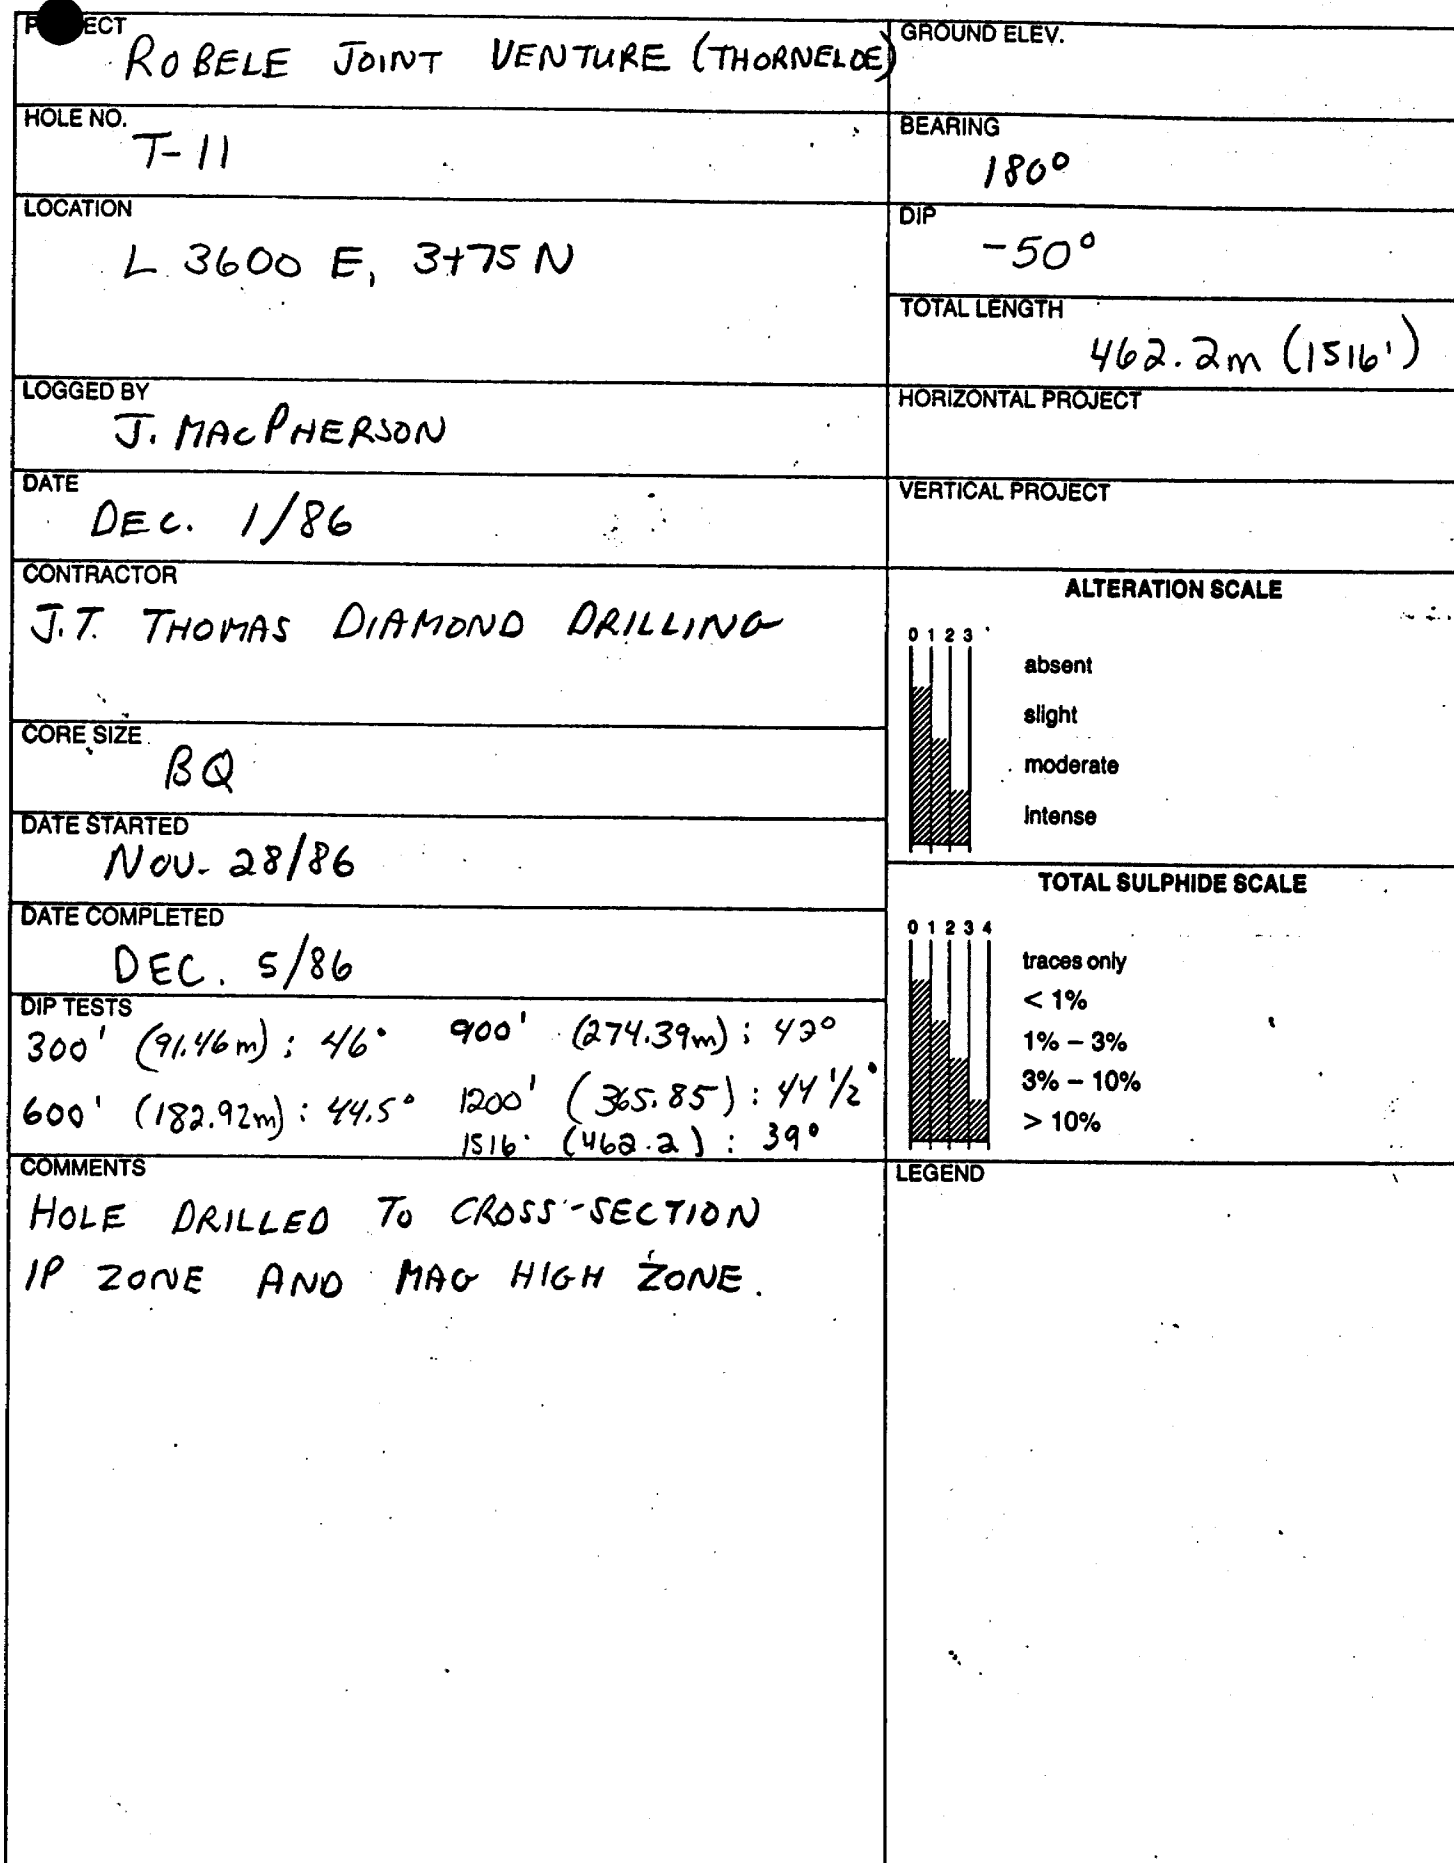 ROBELE JOINT VENTURE (THORNELOE)
HOLE NO.
T-11
LOCATION
L 3600 E, 3+75 N
LOGGED BY
J. MACPHERSON
DATE
DEC. 1/86
CONTRACTOR
J.T. THOMAS DIAMOND DRILLING
CORE SIZE
BQ
DATE STARTED
NOV. 28/86
DATE COMPLETED
DEC. 5/86
DIP TESTS
300' (91.46m) : 46° 900' (274.39m) :
600' (182.92m) : 44.5° 1200' (365.85) : 44 1/2°
1516' (462.2) : 39°
COMMENTS
HOLE DRILLED TO CROSS-SECTION
IP ZONE AND MAG HIGH ZONE.
GROUND ELEV.
BEARING
180°
DIP
-50°
TOTAL LENGTH
462.2m (1516')
HORIZONTAL PROJECT
VERTICAL PROJECT
ALTERATION SCALE
0 1 2 3
absent
slight
moderate
intense
TOTAL SULPHIDE SCALE
0 1 2 3 4
traces only
< 1%
1% – 3%
3% – 10%
> 10%
LEGEND